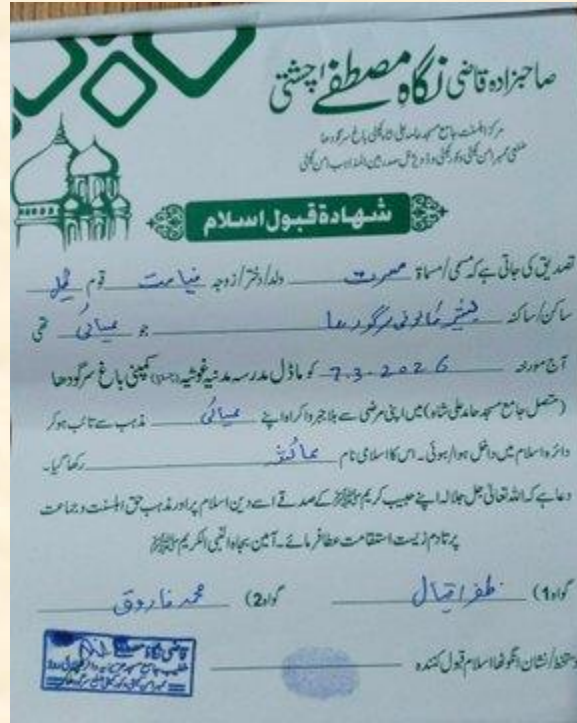 صاحبزادہ قاضی نگاہ مصطفےٰ چشتی
مرکز اہلسنت جامع مسجد حامد علی شاہ کمپنی باغ سرگودھا
شھادۃ قبول اسلام
تصدیق کی جاتی ہے کہ مسمی/مسماۃ مسرت ولد/دختر/زوجہ ضیامت قوم
ساکن/ساکنہ بشیر کالونی سرگودھا جو عیسائی تھی
آج مورخہ 7.3.2026 کو ماڈل مدرسہ مدنیہ غوثیہ (رجسٹرڈ) کمپنی باغ سرگودھا
(متصل جامع مسجد حامد علی شاہ) میں اپنی مرضی سے بلا جبر و اکراہ اپنے عیسائی مذہب سے تائب ہو کر
دائرہ اسلام میں داخل ہوا/ہوئی۔ اس کا اسلامی نام رکھا گیا۔
دعا ہے کہ اللہ تعالیٰ جل جلالہ اپنے حبیب کریم ﷺ کے صدقے اسے دین اسلام پر اور مذہب حق اہلسنت و جماعت
پر تادم زیست استقامت عطا فرمائے۔ آمین بجاہ النبی الکریم ﷺ
گواہ (1) ظفر اقبال گواہ (2) محمد فاروق
دستخط/نشان انگوٹھا اسلام قبول کنندہ
قاضی نگاہ مصطفےٰ